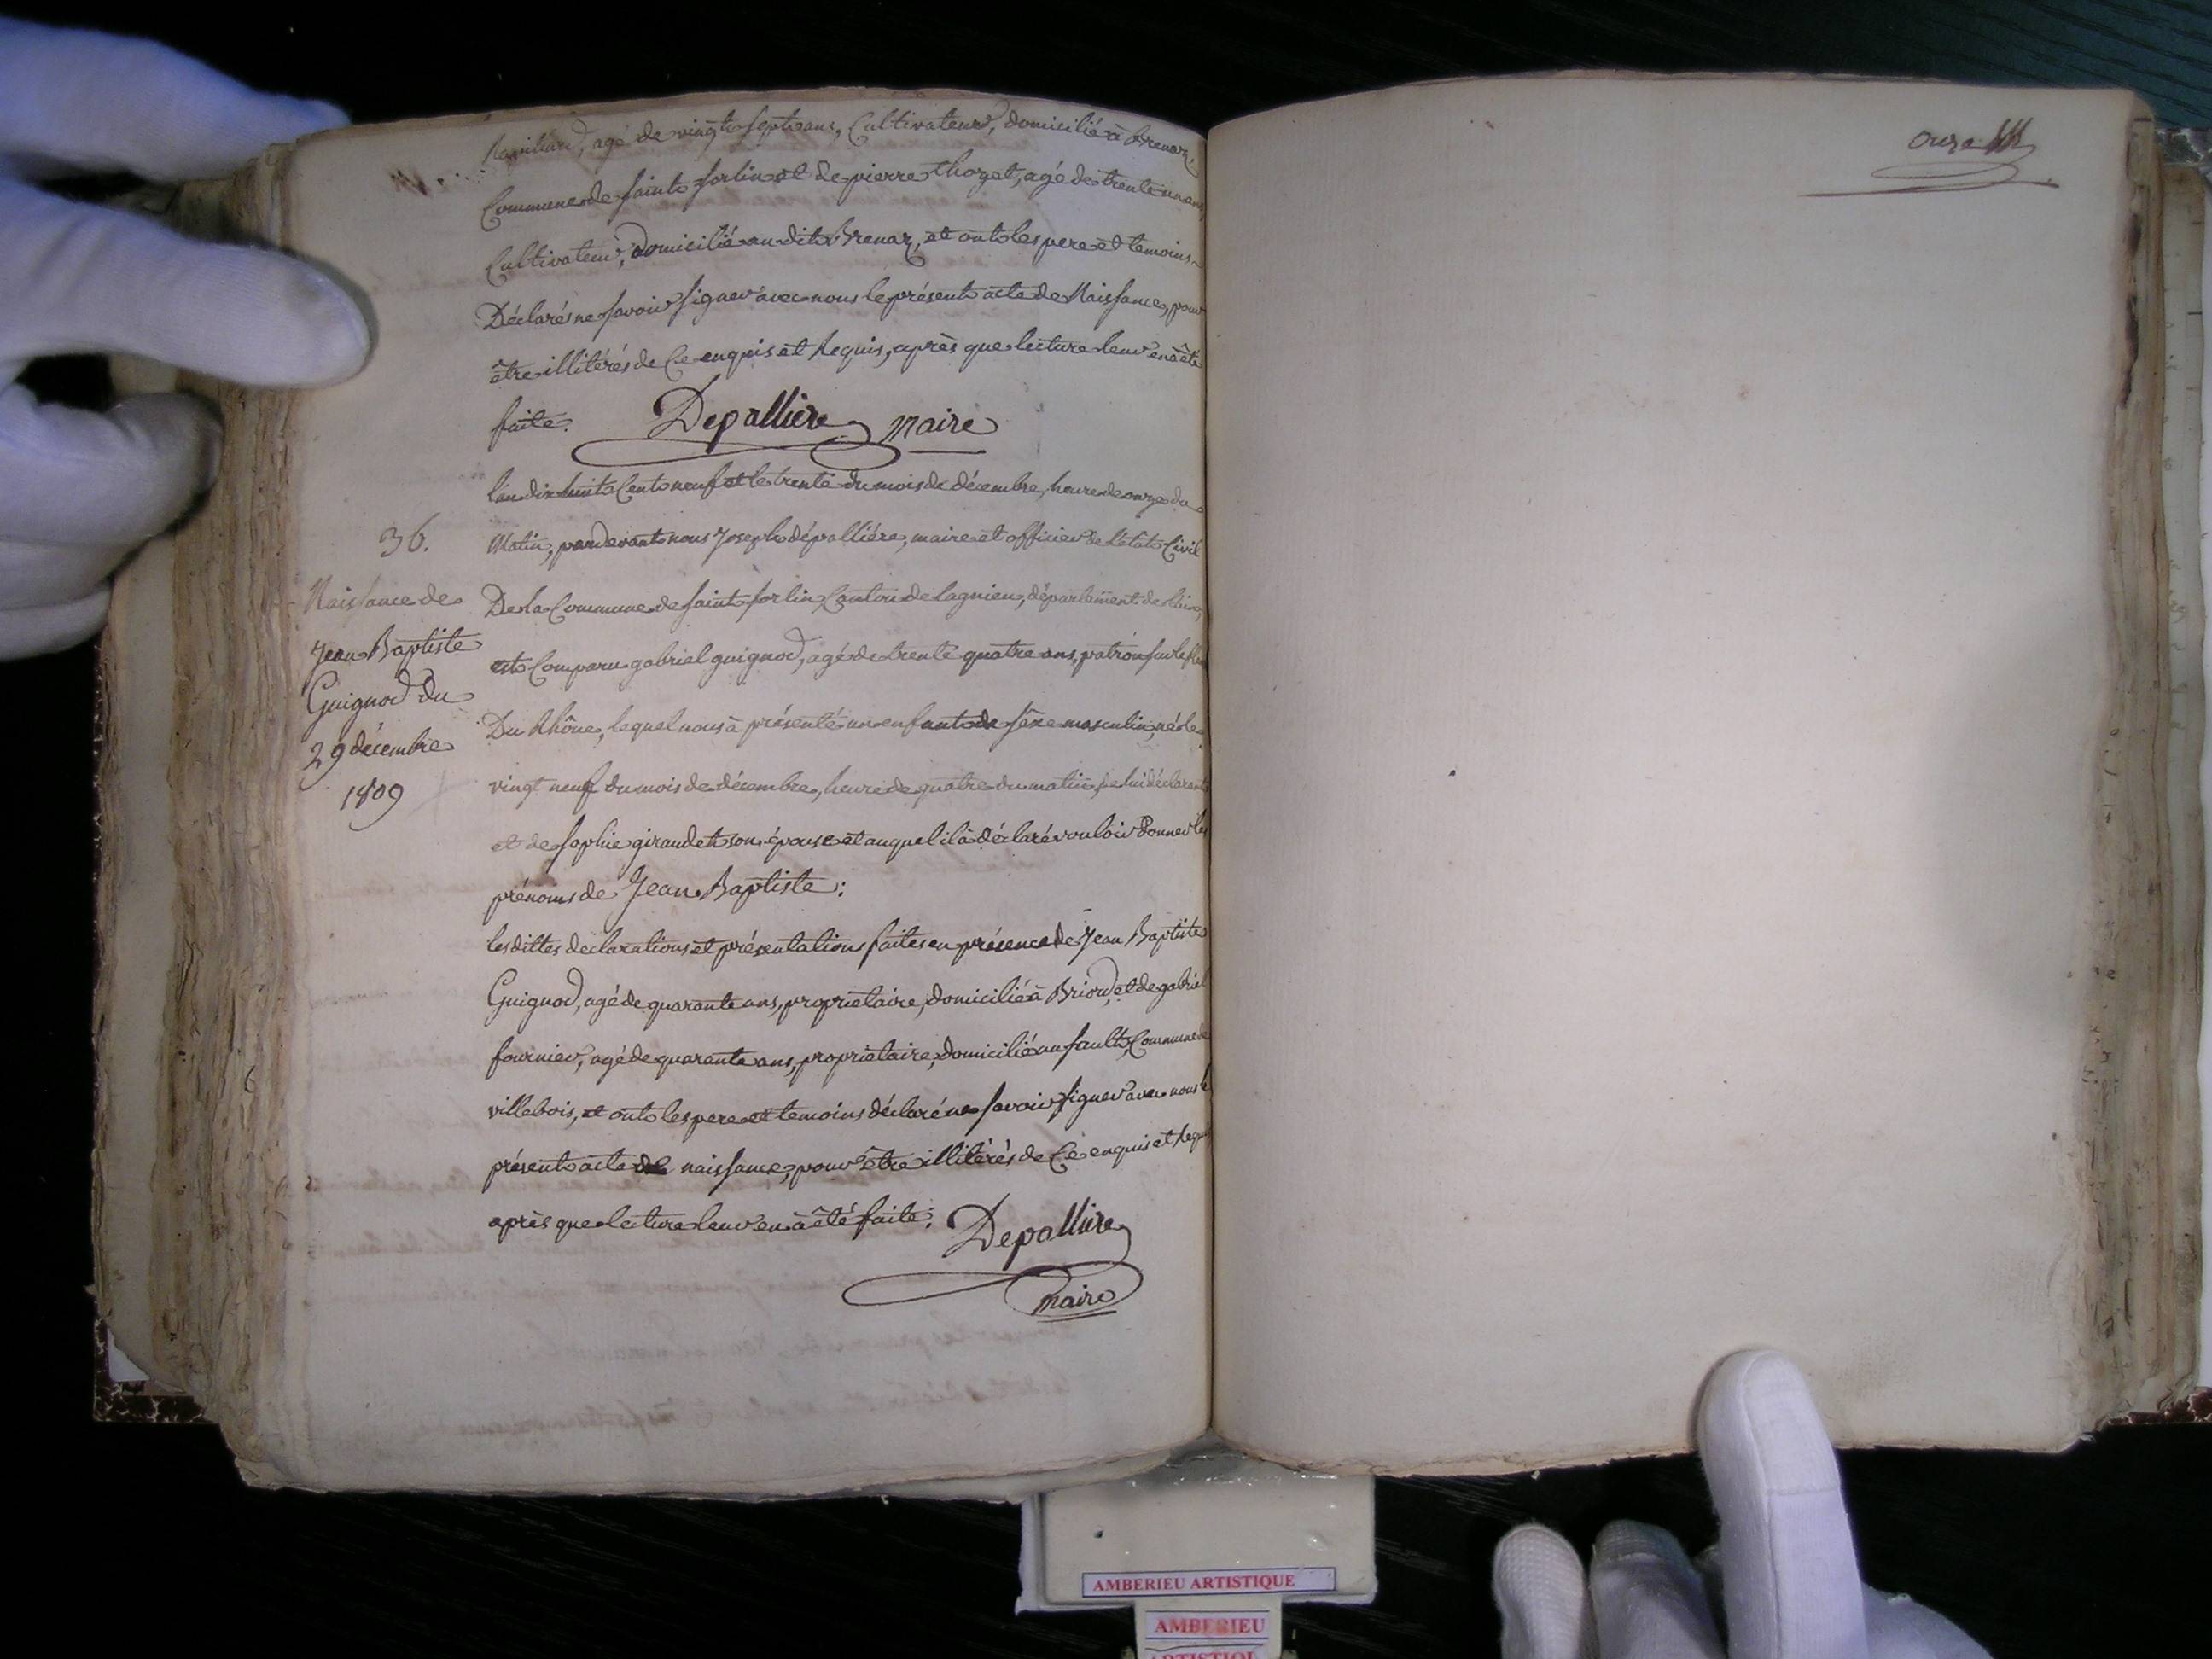 agé de vingt sept ans, Cultivateur, domicilié à Brenaz,
Commune de saint sorlin et de pierre thozet, agé de trente un ans
Cultivateur, domicilié au dit Brenaz, et ont les pere et temoins
Déclarés ne savoir signer avec nous le présent acte de Naissance, pour
être illitérés de Ce enquis et Requis, après que lecture leur en à été
faite. Depalliere maire
l'an dix huit Cent neuf et le trente du mois de décembre, heure de onze du
36. Matin, pardevant nous Joseph dépalliére, maire et officier de l'état Civil
Naissance de De la Commune de saint sorlin, Canton de lagnieu, département de l'ain,
Jean Baptiste est Comparu gabriel guignod, agé de trente quatre ans, patron sur le
Guignod du Du Rhône, lequel nous à présenté un enfant de séxe masculin, né le
29 décembre vingt neuf du mois de décembre, heure de quatre du matin, de lui déclarant
1809 et de sophie giraudet son épouse et auquel il à déclaré vouloir Donner les
prénoms de Jean Baptiste:
les dittes declarations et présentations faites en présence de Jean Baptiste
Guignod, agé de quarante ans, propriétaire, domicilié à Briord, et de gabriel
fournier, agé de quarante ans, propriétaire, domicilié au sault, Commune de
villebois, et ont les pere et temoins déclaré ne savoir signer avec nous le
présent acte de naissance, pour être illitérés de Ce enquis et Requis
après que lecture leur en à été faite: Depalliere
maire
onze
AMBERIEU ARTISTIQUE
AMBERIEU
ARTISTIQUE